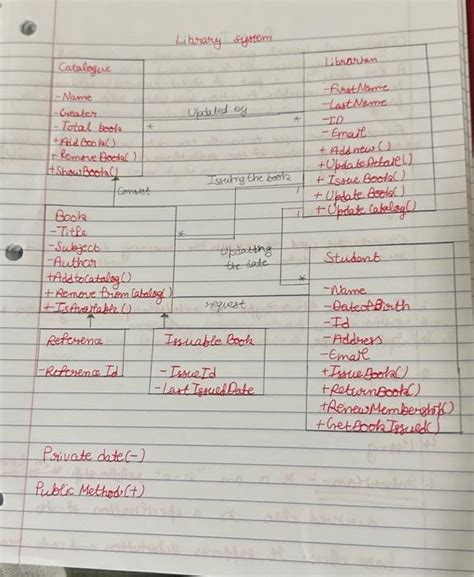 Library system
Catalogue
- Name
- Creater
- Total book
+ Add Book()
+ Remove Book()
+ Show Book()
Updated by
*
Librarian
- FirstName
- LastName
- ID
- Email
+ Addnew()
+ Issue Book()
+ Update Book()
+ Update Catalog()
Issuing the book
Book
- Title
- Subject
- Author
+ Addto Catalog()
+ Remove from Catalog()
+ IsAvailable()
*
Updating
the date
*
request
Student
- Name
- Date of Birth
- Id
- Address
- Email
+ Issue Book()
+ Return Book()
+ Renew Membership()
+ Get Book Issued()
Reference
- Reference Id
Issuable Book
- Issue Id
- Last Issued Date
Private date (-)
Public Method: (+)